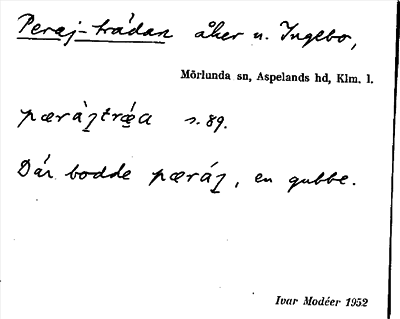 Peraj-trådan åker u. Ingebo,
Mörlunda sn, Aspelands hd, Klm. l.
pæràʒtrǻ̱a s. 89.
Där bodde pæráʒ, en gubbe.
Ivar Modéer 1952